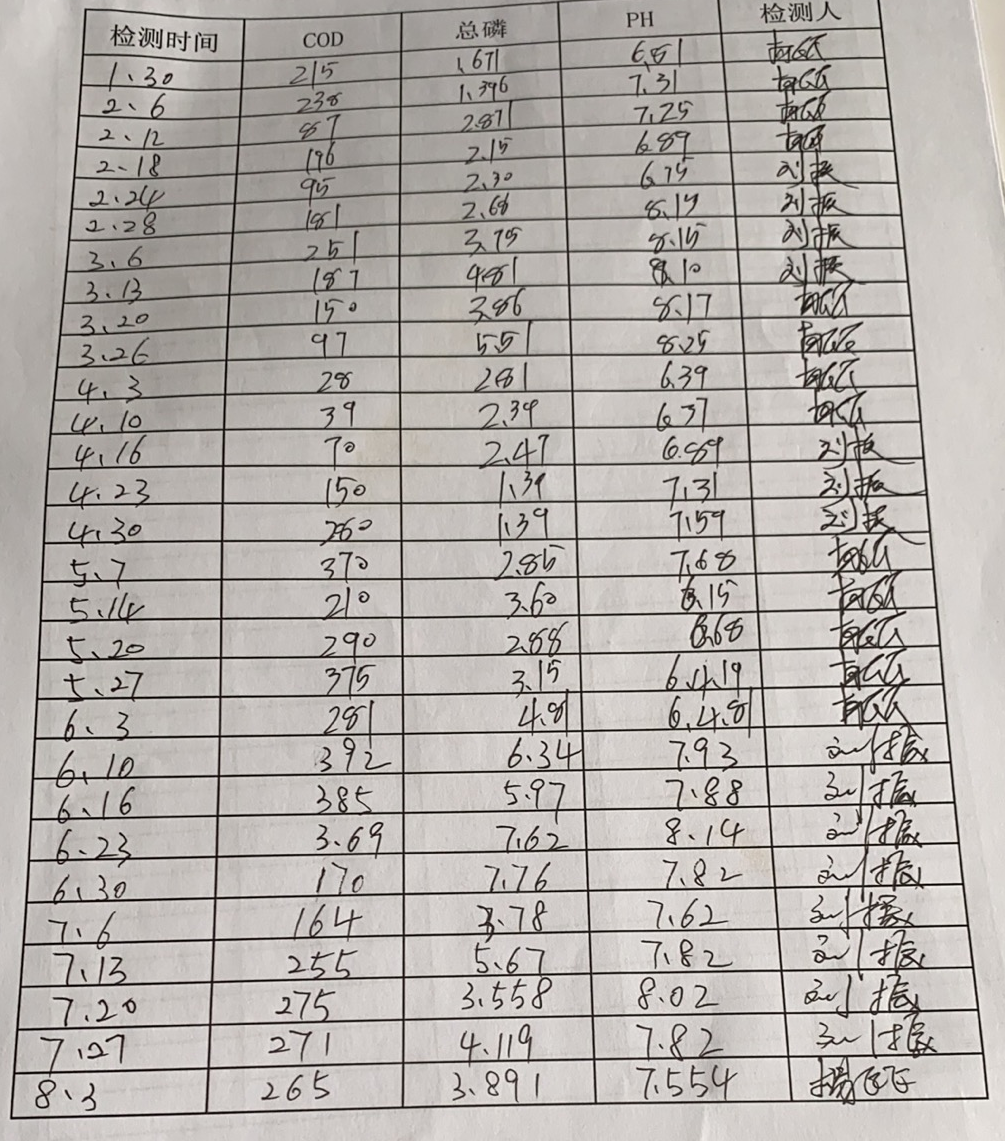 检测时间 COD 总磷 PH 检测人
1.30 215 1.671 6.81
2.6 238 1.396 7.31
2.12 87 2.871 7.25
2.18 196 2.15 6.89
2.24 95 2.30 6.75 刘振
2.28 181 2.68 8.19 刘振
3.6 251 3.75 8.15 刘振
3.13 187 4.81 8.10 刘振
3.20 150 3.86 8.17
3.26 97 5.51 8.25
4.3 28 2.81 6.39
4.10 39 2.39 6.37
4.16 70 2.47 6.89 刘振
4.23 150 1.39 7.31 刘振
4.30 280 1.39 7.59 刘振
5.7 370 2.85 7.68
5.14 210 3.60 6.15
5.20 290 2.88 6.68
5.27 375 3.15 6.4.19
6.3 281 4.81 6.4.81
6.10 392 6.34 7.93 刘振
6.16 385 5.97 7.88 刘振
6.23 3.69 7.62 8.14 刘振
6.30 170 7.76 7.82 刘振
7.6 164 3.78 7.62 刘振
7.13 255 5.67 7.82 刘振
7.20 275 3.558 8.02 刘振
7.27 271 4.119 7.82 刘振
8.3 265 3.891 7.554